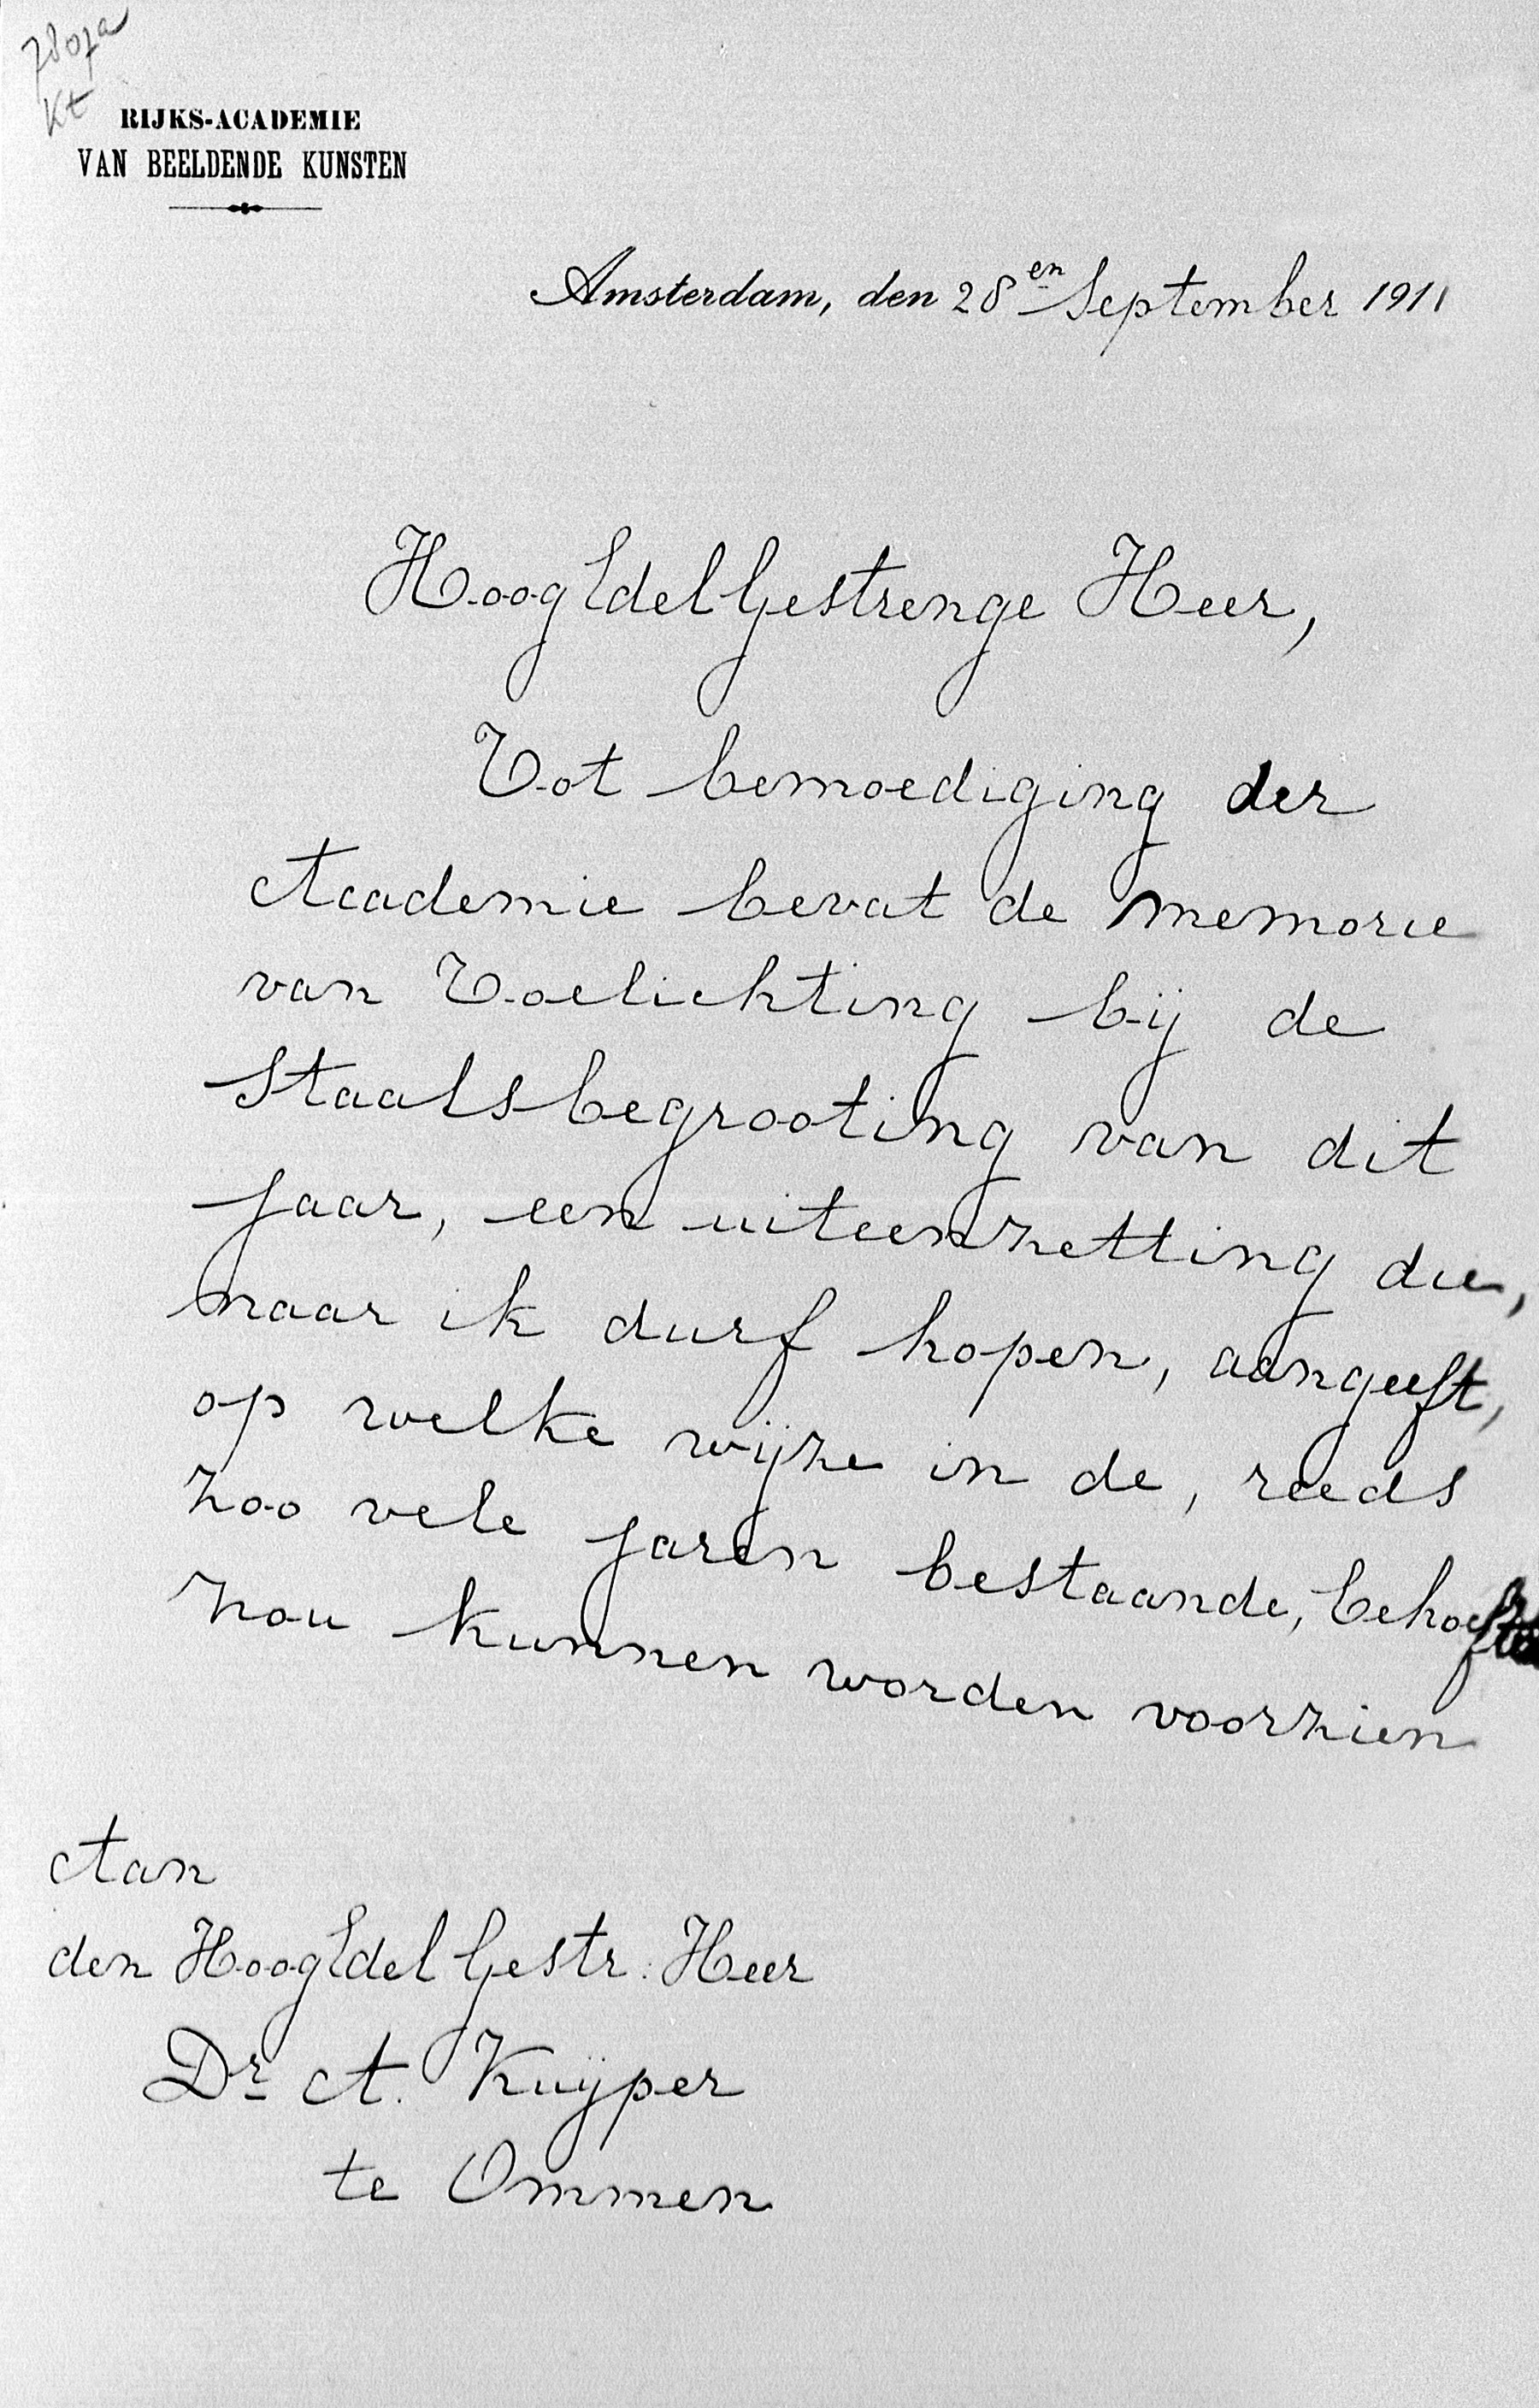 7807a
Kt
RIJKS-ACADEMIE
VAN BEELDENDE KUNSTEN
Amsterdam, den 28en September 1911
HoogEdelGestrenge Heer,
Tot bemoediging der
Academie bevat de Memorie
van Toelichting bij de
Staatsbegrooting van dit
jaar, een uiteenzetting die,
naar ik durf hopen, aangeeft,
op welke wijze in de, reeds
zoo vele jaren bestaande, behoefte
zou kunnen worden voorzien
Aan
den HoogEdelGestr: Heer
Dr A. Kuijper
te Ommen